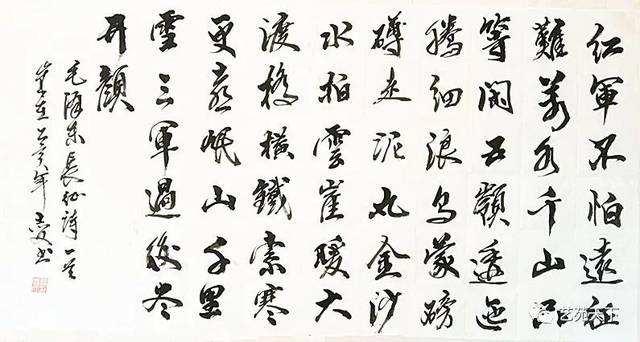 红軍不怕遠征
難萬水千山只
等閑五嶺逶迤
騰細浪烏蒙磅
礴走泥丸金沙
水拍雲崖暖大
渡橋橫鐵索寒
更喜岷山千里
雪三軍過後尽
開顏
毛澤東長征詩一首
歲在己亥年
书
艺苑